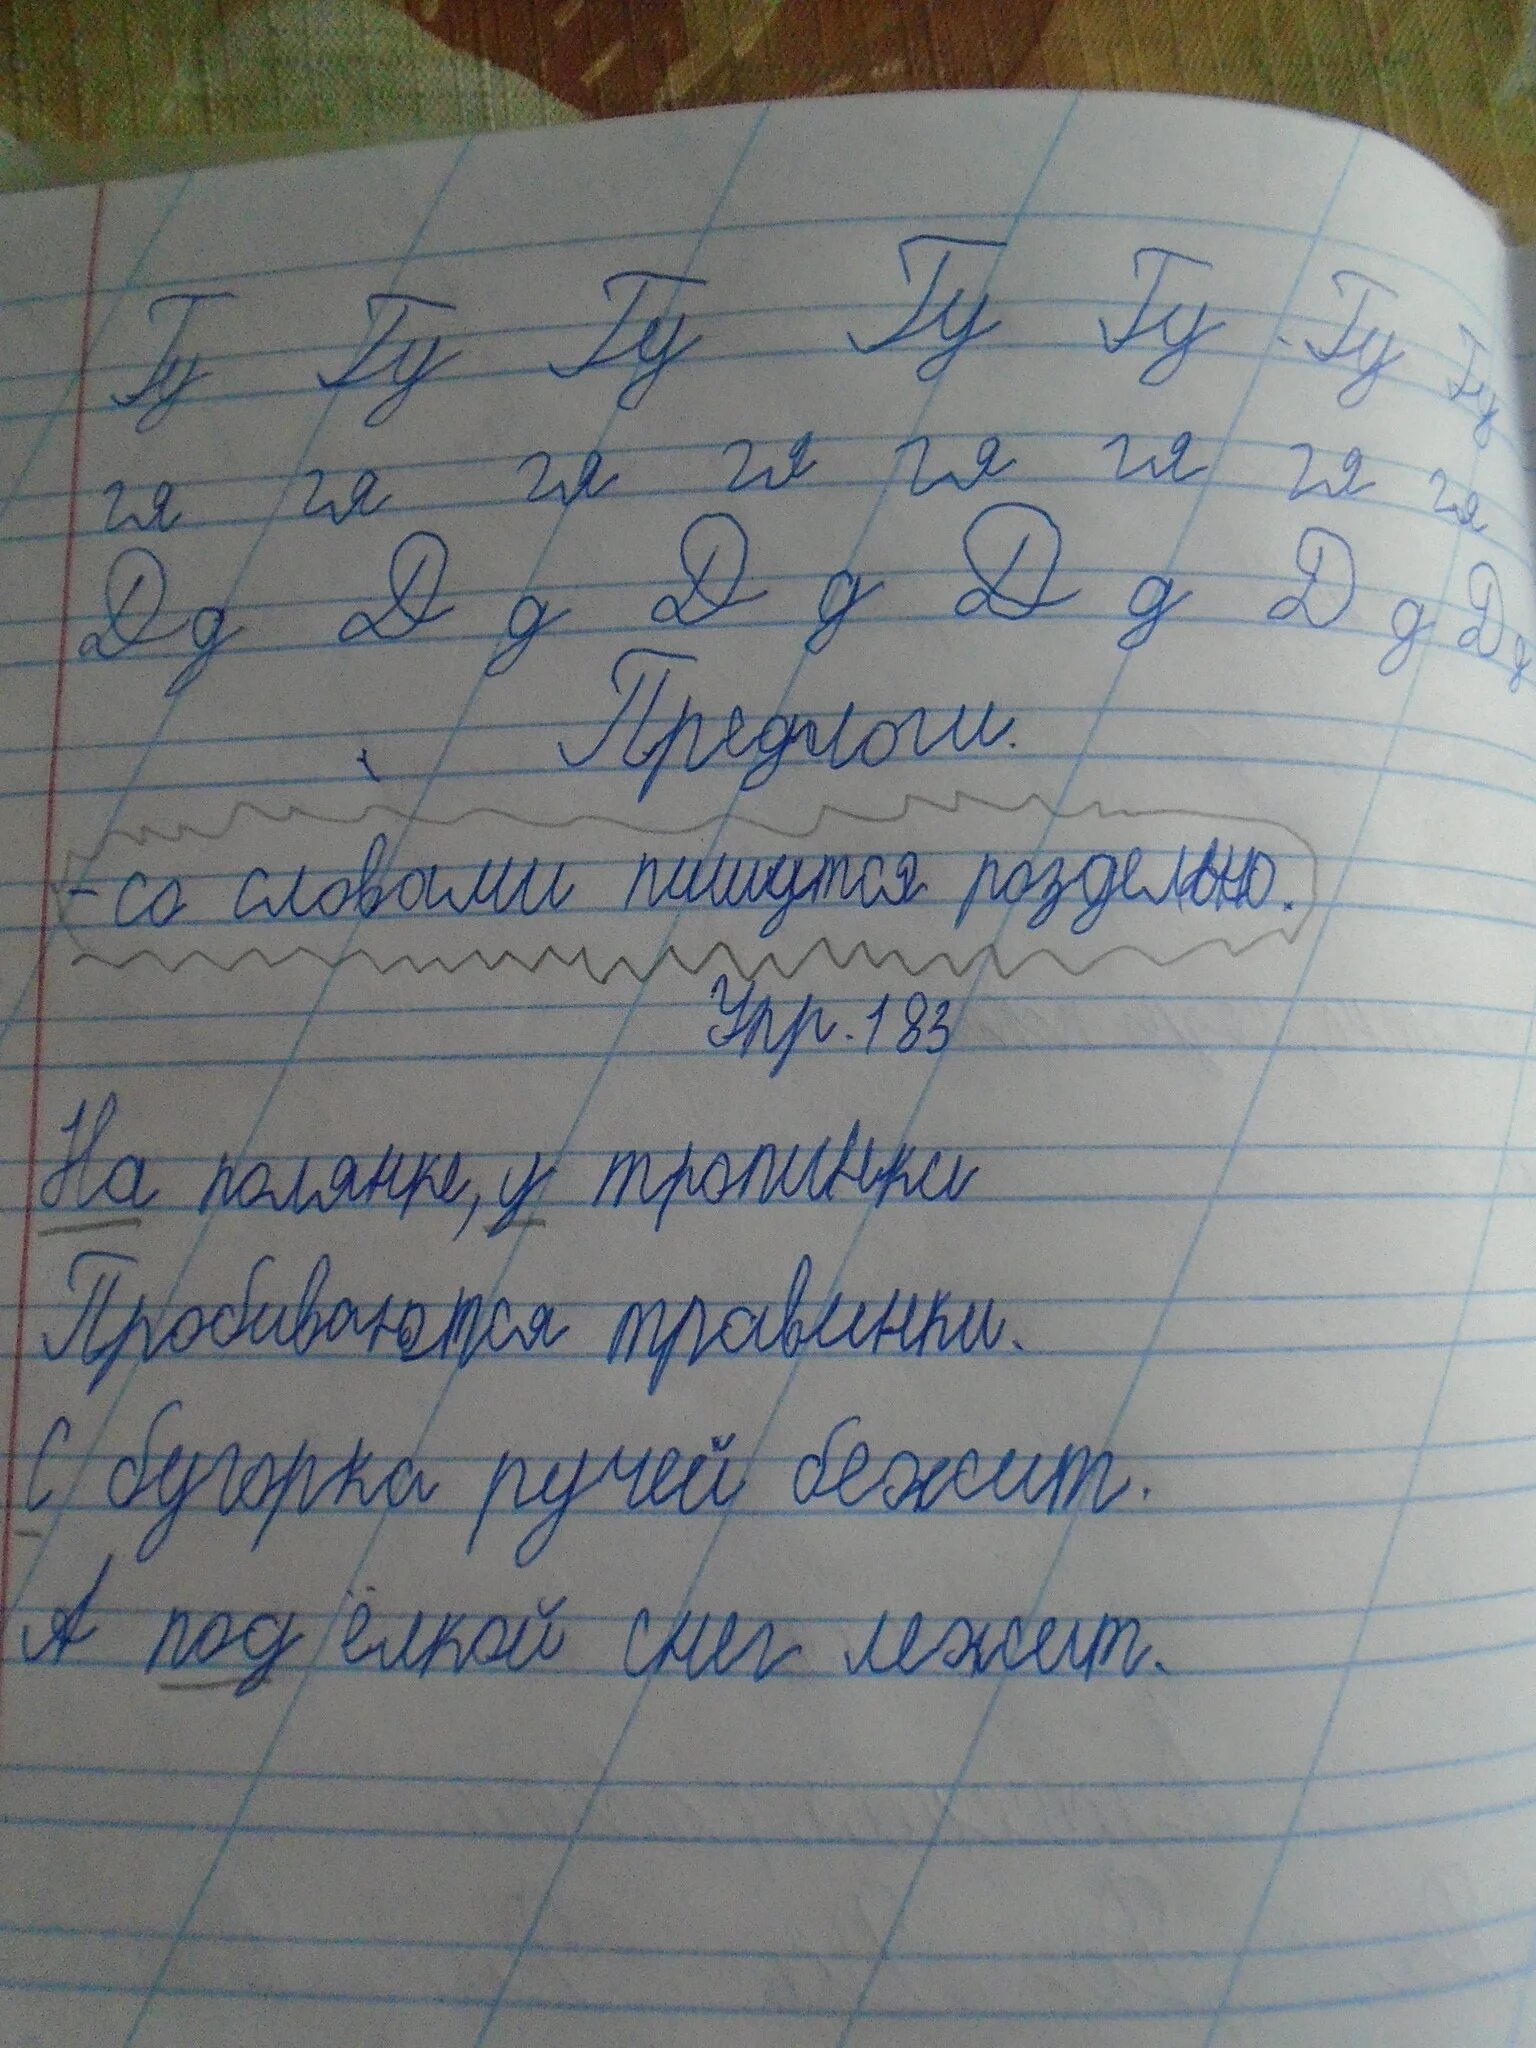 Гу Гу Гу Гу Гу Гу Гу
гя гя гя гя гя гя гя гя
Д д Д д Д д Д д Д д Д д
Предлоги.
-со словами пишутся роздельно.
Упр. 183
На полянке, у тропинки
Пробиваются травинки.
С бугорка ручей бежит.
А под ёлкой снег лежит.